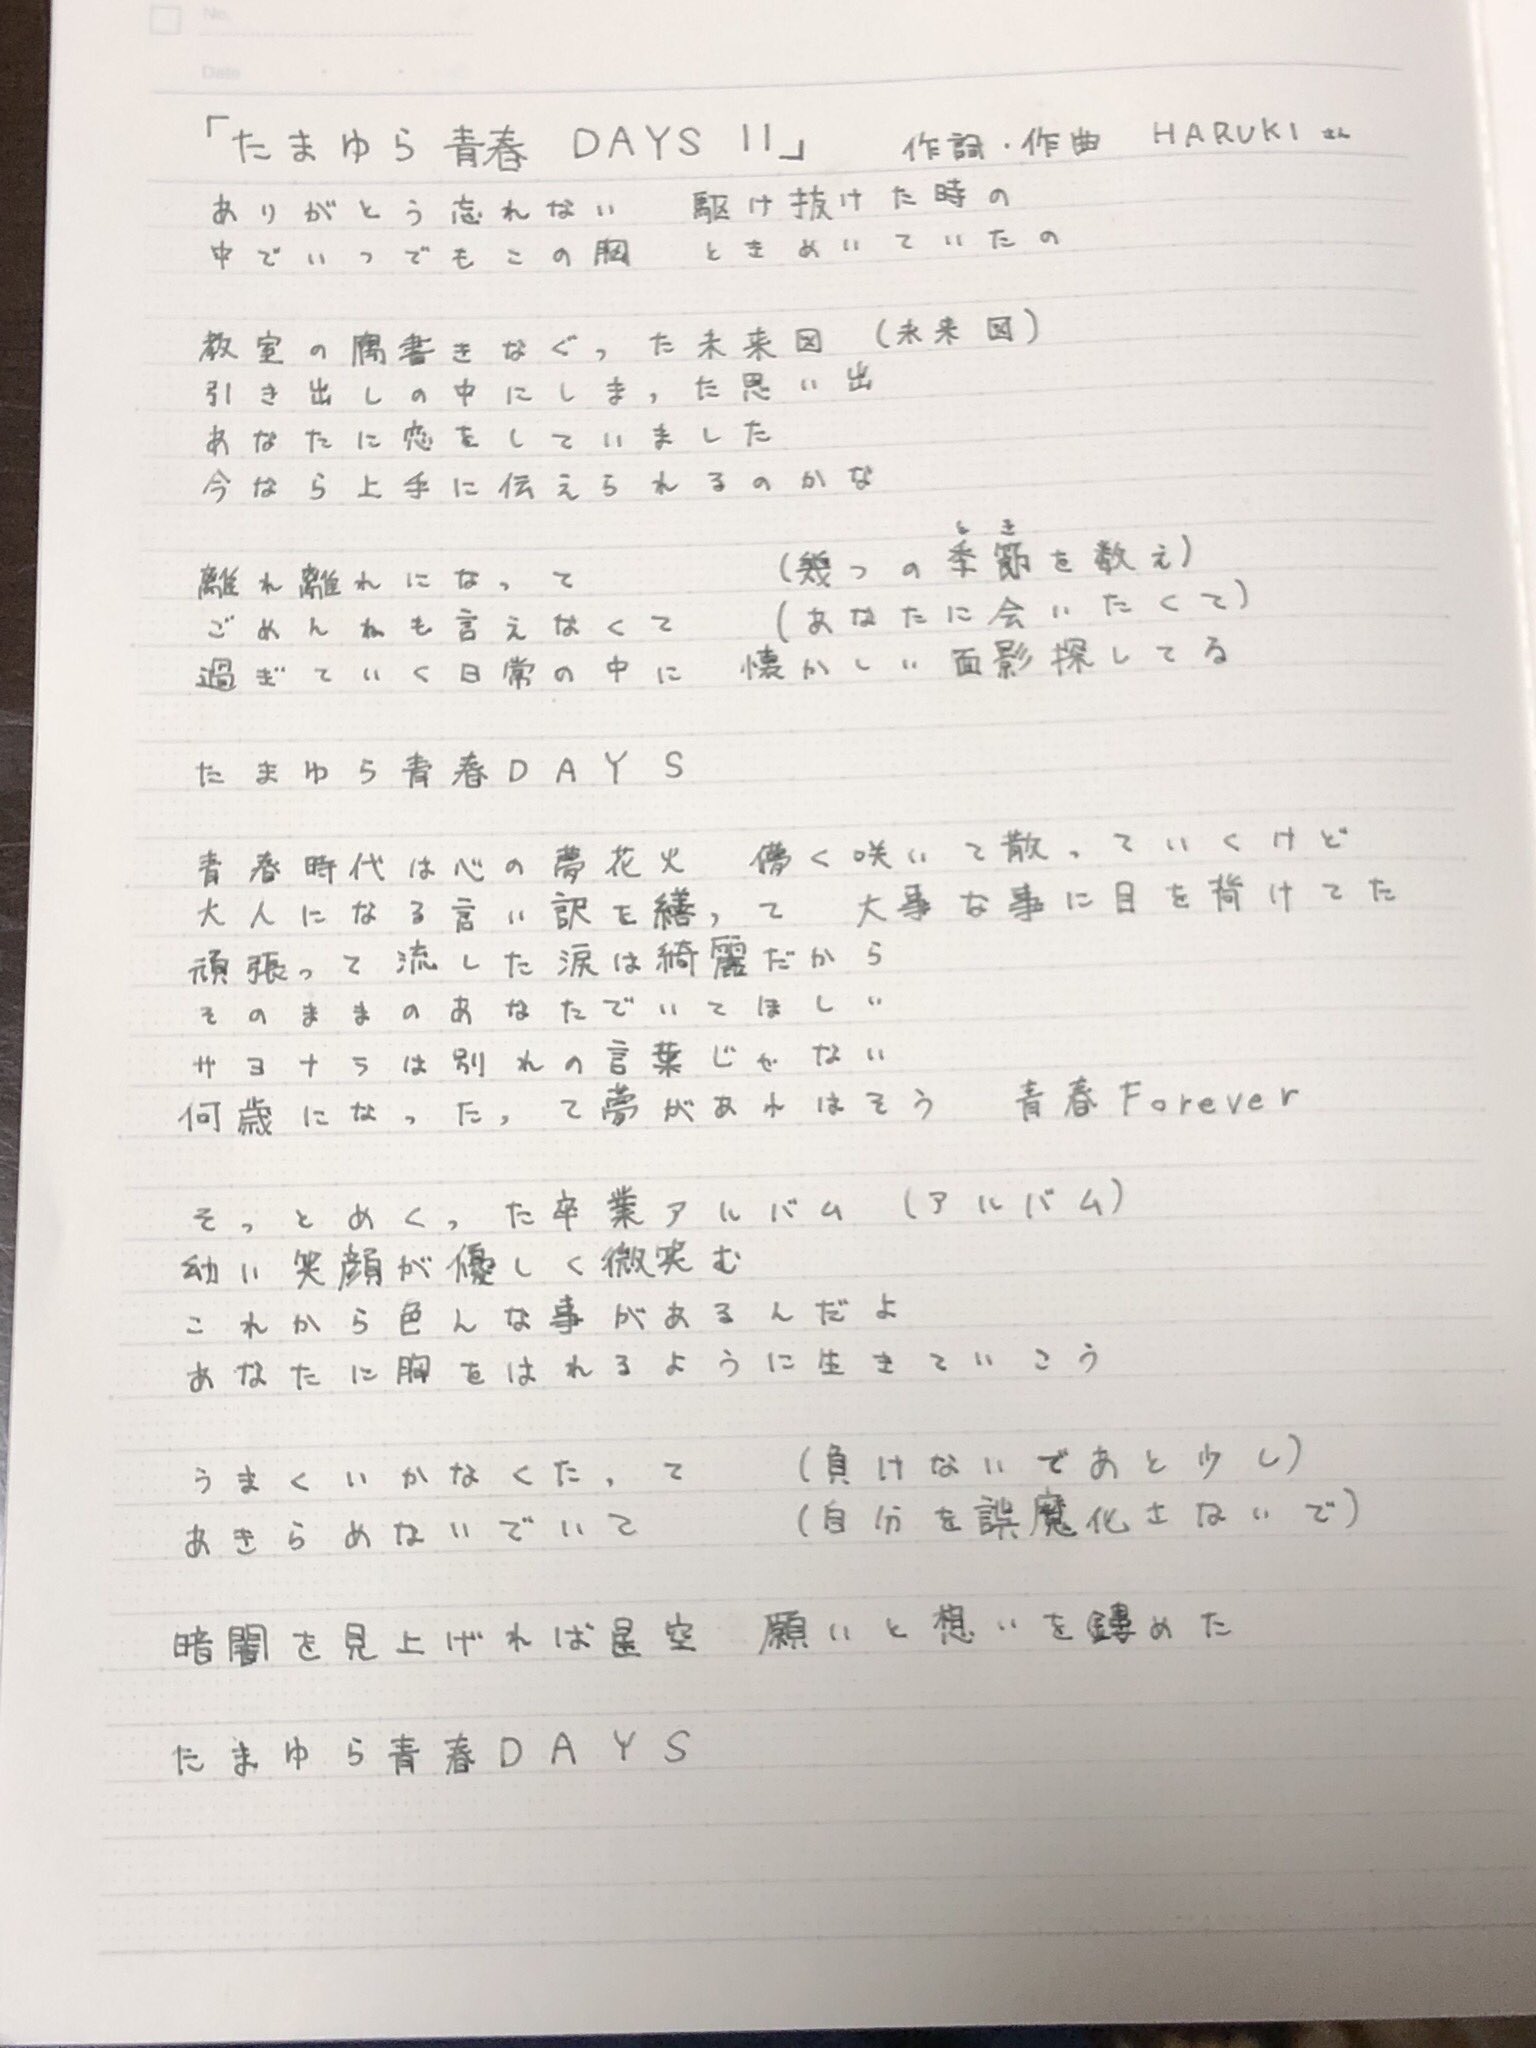 No.
Date
「たまゆら青春 DAYS II」 作詞・作曲 HARUKIさん
ありがとう忘れない 駆け抜けた時の
中でいつでもこの胸 ときめいていたの
教室の隅書きなぐった未来図 (未来図)
引き出しの中にしまった思い出
あなたに恋をしていました
今なら上手に伝えられるのかな
離れ離れになって (幾つの季節を数え)
とき
ごめんねも言えなくて (あなたに会いたくて)
過ぎていく日常の中に 懐かしい面影探してる
たまゆら青春DAYS
青春時代は心の夢花火 儚く咲いて散っていくけど
大人になる言い訳を繕って 大事な事に目を背けてた
頑張って流した涙は綺麗だから
そのままのあなたでいてほしい
サヨナラは別れの言葉じゃない
何歳になったって夢があればそう 青春Forever
そっとめくった卒業アルバム (アルバム)
幼い笑顔が優しく微笑む
これから色んな事があるんだよ
あなたに胸をはれるように生きていこう
うまくいかなくたって (負けないであと少し)
あきらめないでいて (自分を誤魔化さないで)
暗闇を見上げれば星空 願いと想いを鏤めた
たまゆら青春DAYS